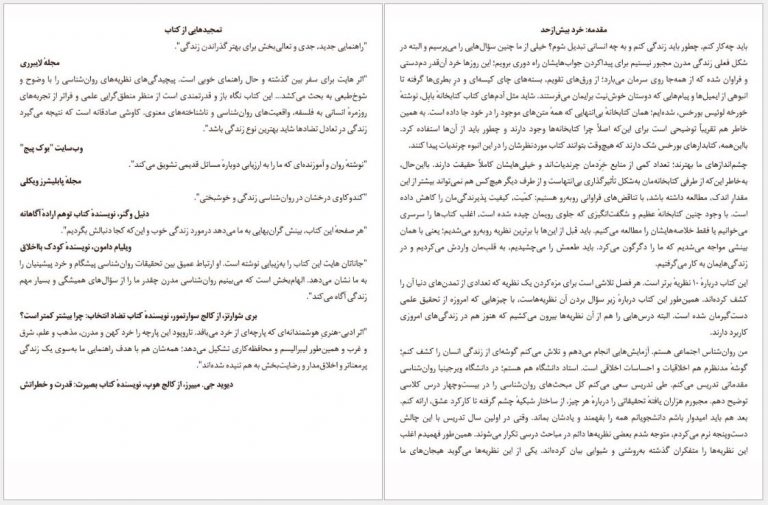 مقدمه: خرد بیش‌ازحد
باید چه‌کار کنم، چطور باید زندگی کنم و به چه انسانی تبدیل شوم؟ خیلی از ما چنین سؤال‌هایی را می‌پرسیم و البته در
شکل فعلی زندگی مدرن مجبور نیستیم برای پیداکردن جواب‌هایشان راه دوری برویم؛ این روزها خرد آن‌قدر دم‌دستی
و فراوان شده که از همه‌جا روی سرمان می‌بارد؛ از ورق‌های تقویم، بسته‌های چای کیسه‌ای و درِ بطری‌ها گرفته تا
انبوهی از ایمیل‌ها و پیام‌هایی که دوستان خوش‌نیت برایمان می‌فرستند. شاید مثل آدم‌های کتاب کتابخانهٔ بابِل، نوشتهٔ
خورخه لوئیس بورخس، شده‌ایم؛ همان کتابخانهٔ بی‌انتهایی که همهٔ متن‌های موجود را در خود جا داده است. به همین
خاطر هم تقریباً توضیحی است برای این‌که اصلاً چرا کتابخانه‌ها وجود دارند و چطور باید از آن‌ها استفاده کرد.
بااین‌همه، کتابدارهای بورخس شک دارند که هیچ‌وقت بتوانند کتاب موردنظرشان را در این انبوه چرندیات پیدا کنند.
چشم‌اندازهای ما بهترند؛ تعداد کمی از منابع خِرَدمان چرندیات‌اند و خیلی‌هایشان کاملاً حقیقت دارند. بااین‌حال،
به‌خاطر این‌که از طرفی کتابخانه‌مان به‌شکل تأثیرگذاری بی‌انتهاست و از طرف دیگر هیچ‌کس هم نمی‌تواند بیشتر از این
مقدار اندک، مطالعه داشته باشد، با تناقض‌های فراوانی روبه‌رو هستیم: کمّیت، کیفیت پذیرندگی‌مان را کاهش داده
است. با وجود چنین کتابخانهٔ عظیم و شگفت‌انگیزی که جلوی رویمان چیده شده است، اغلب کتاب‌ها را سرسری
می‌خوانیم یا فقط خلاصه‌هایشان را مطالعه می‌کنیم. باید قبل از این‌ها با برترین نظریه روبه‌رو می‌شدیم؛ یعنی با همان
بینشی مواجه می‌شدیم که ما را دگرگون می‌کرد. باید طعمش را می‌چشیدیم، به قلب‌مان واردش می‌کردیم و در
زندگی‌هایمان به کار می‌گرفتیم.
این کتاب دربارهٔ ۱۰ نظریهٔ برتر است. هر فصل تلاشی است برای مزه‌کردن یک نظریه که تعدادی از تمدن‌های دنیا آن را
کشف کرده‌اند. همین‌طور این کتاب دربارهٔ زیر سؤال بردن آن نظریه‌هاست، با چیزهایی که امروزه از تحقیق علمی
دست‌گیرمان شده است. البته درس‌هایی را هم از آن نظریه‌ها بیرون می‌کشیم که هنوز هم در زندگی‌های امروزی
کاربرد دارند.
من روان‌شناس اجتماعی هستم. آزمایش‌هایی انجام می‌دهم و تلاش می‌کنم گوشه‌ای از زندگی انسان را کشف کنم؛
گوشهٔ مدنظرم هم اخلاقیات و احساسات اخلاقی است. استاد دانشگاه هم هستم؛ در دانشگاه ویرجینیا روان‌شناسی
مقدماتی تدریس می‌کنم. طی تدریس سعی می‌کنم کل مبحث‌های روان‌شناسی را در بیست‌وچهار درس کلاسی
توضیح دهم. مجبورم هزاران یافتهٔ تحقیقاتی را دربارهٔ هر چیز، از ساختار شبکیهٔ چشم گرفته تا کارکرد عشق، ارائه کنم.
بعد هم باید امیدوار باشم دانشجویانم همه را بفهمند و یادشان بماند. وقتی در اولین سال تدریس با این چالش
دست‌وپنجه نرم می‌کردم، متوجه شدم بعضی نظریه‌ها دائم در مباحث درسی تکرار می‌شوند. همین‌طور فهمیدم اغلب
این نظریه‌ها را متفکران گذشته به‌روشنی و شیوایی بیان کرده‌اند. یکی از این نظریه‌ها می‌گوید هیجان‌های ما
تمجیدهایی از کتاب
"راهنمایی جدید، جدی و تعالی‌بخش برای بهتر گذراندن زندگی".
مجلهٔ لایبرری
"اثر هایت برای سفر بین گذشته و حال راهنمای خوبی است. پیچیدگی‌های نظریه‌های روان‌شناسی را با وضوح و
شوخ‌طبعی به بحث می‌کشد... این کتاب نگاه باز و قدرتمندی است از منظر منطق‌گرایی علمی و فراتر از تجربه‌های
روزمرهٔ انسانی به فلسفه، واقعیت‌های روان‌شناسی و ناشناخته‌های معنوی، کاوشی صادقانه است که نتیجه می‌گیرد
زندگی در تعادل تضادها شاید بهترین نوع زندگی باشد".
وب‌سایت "بوک پیج"
"نوشتهٔ روان و آموزنده‌ای که ما را به ارزیابی دوبارهٔ مسائل قدیمی تشویق می‌کند".
مجلهٔ پابلیشرز ویکلی
"کندوکاوی درخشان در روان‌شناسی زندگی و خوشبختی".
دنیل وگنر، نویسندهٔ کتاب توهم ارادهٔ آگاهانه
"هر صفحهٔ این کتاب، بینش گران‌بهایی به ما می‌دهد درمورد زندگی خوب و این‌که کجا دنبالش بگردیم".
ویلیام دامون، نویسندهٔ کودک بااخلاق
"جاناتان هایت این کتاب را به‌زیبایی نوشته است. او ارتباط عمیق بین تحقیقات روان‌شناسی پیشگام و خرد پیشینیان را
به ما نشان می‌دهد. الهام‌بخش است که می‌بینیم روان‌شناسی مدرن چقدر ما را از سؤال‌های همیشگی و بسیار مهم
زندگی آگاه می‌کند".
بری شوارتز، از کالج سوارتمور، نویسندهٔ کتاب تضاد انتخاب: چرا بیشتر کمتر است؟
"اثر ادبی-هنریِ هوشمندانه‌ای که پارچه‌ای از خرد می‌بافد. تاروپود این پارچه را خرد کهن و مدرن، مذهب و علم، شرق
و غرب و همین‌طور لیبرالیسم و محافظه‌کاری تشکیل می‌دهد؛ همه‌شان هم با هدف راهنمایی ما به‌سوی یک زندگی
پرمعناتر و اخلاق‌مدار و رضایت‌بخش به هم تنیده شده‌اند".
دیوید جی. مییرز، از کالج هوپ، نویسندهٔ کتاب بصیرت: قدرت و خطراتش